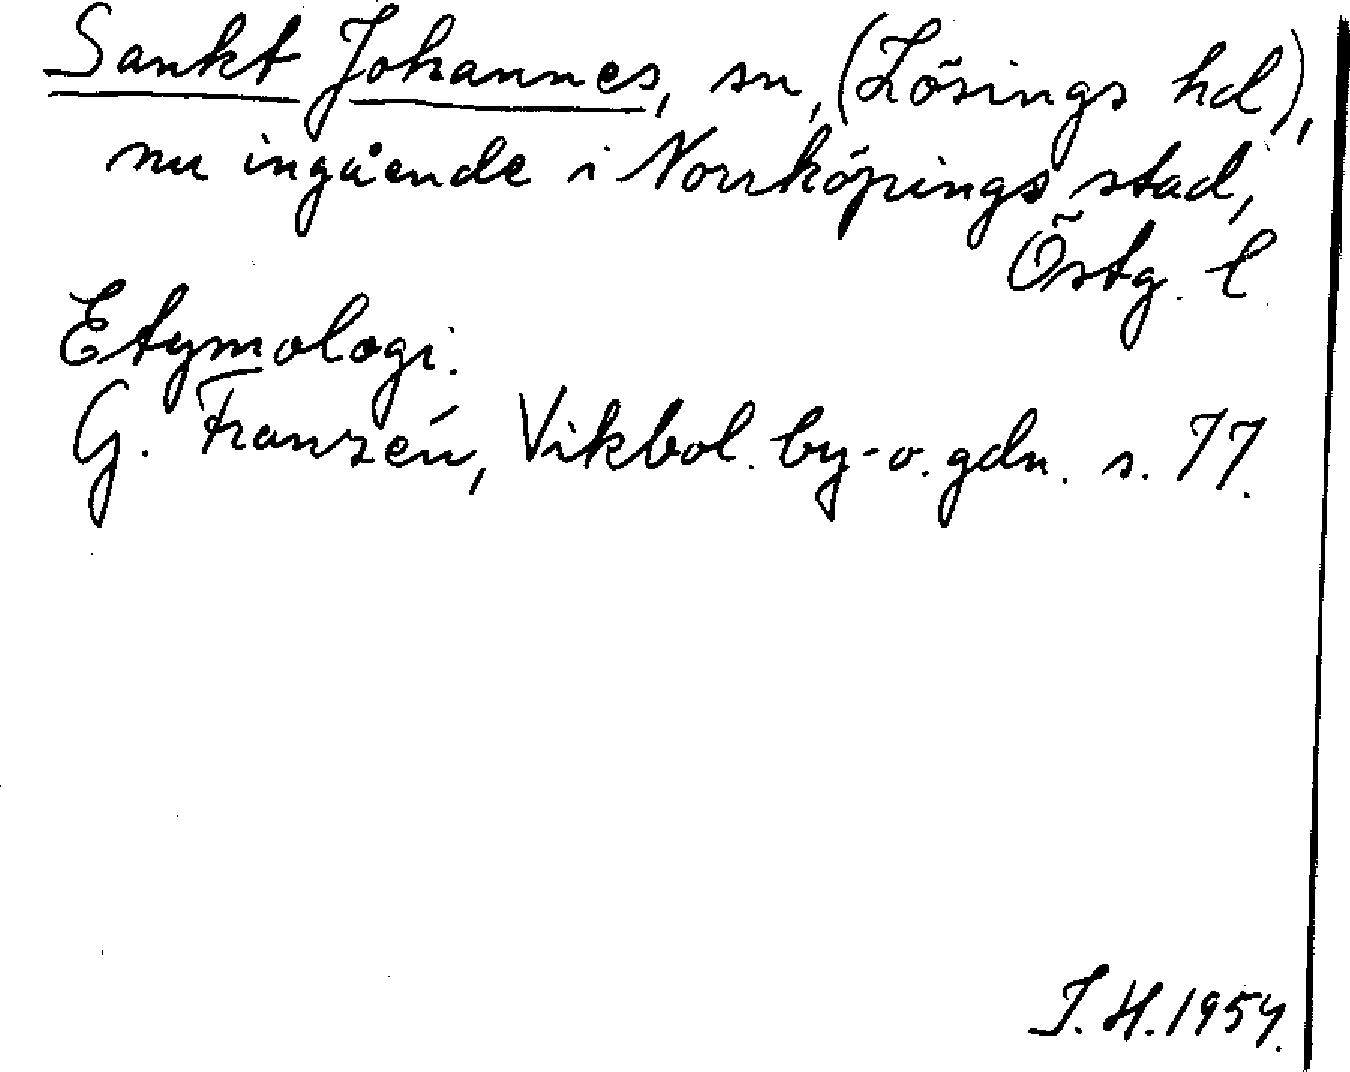 Sankt Johannes, sn, (Lösings hd),
nu ingående i Norrköpings stad,
Östg. l.
Etymologi.
G. Franzén, Vikbol. by- o. gdn. s. 77.
J. H. 1954.